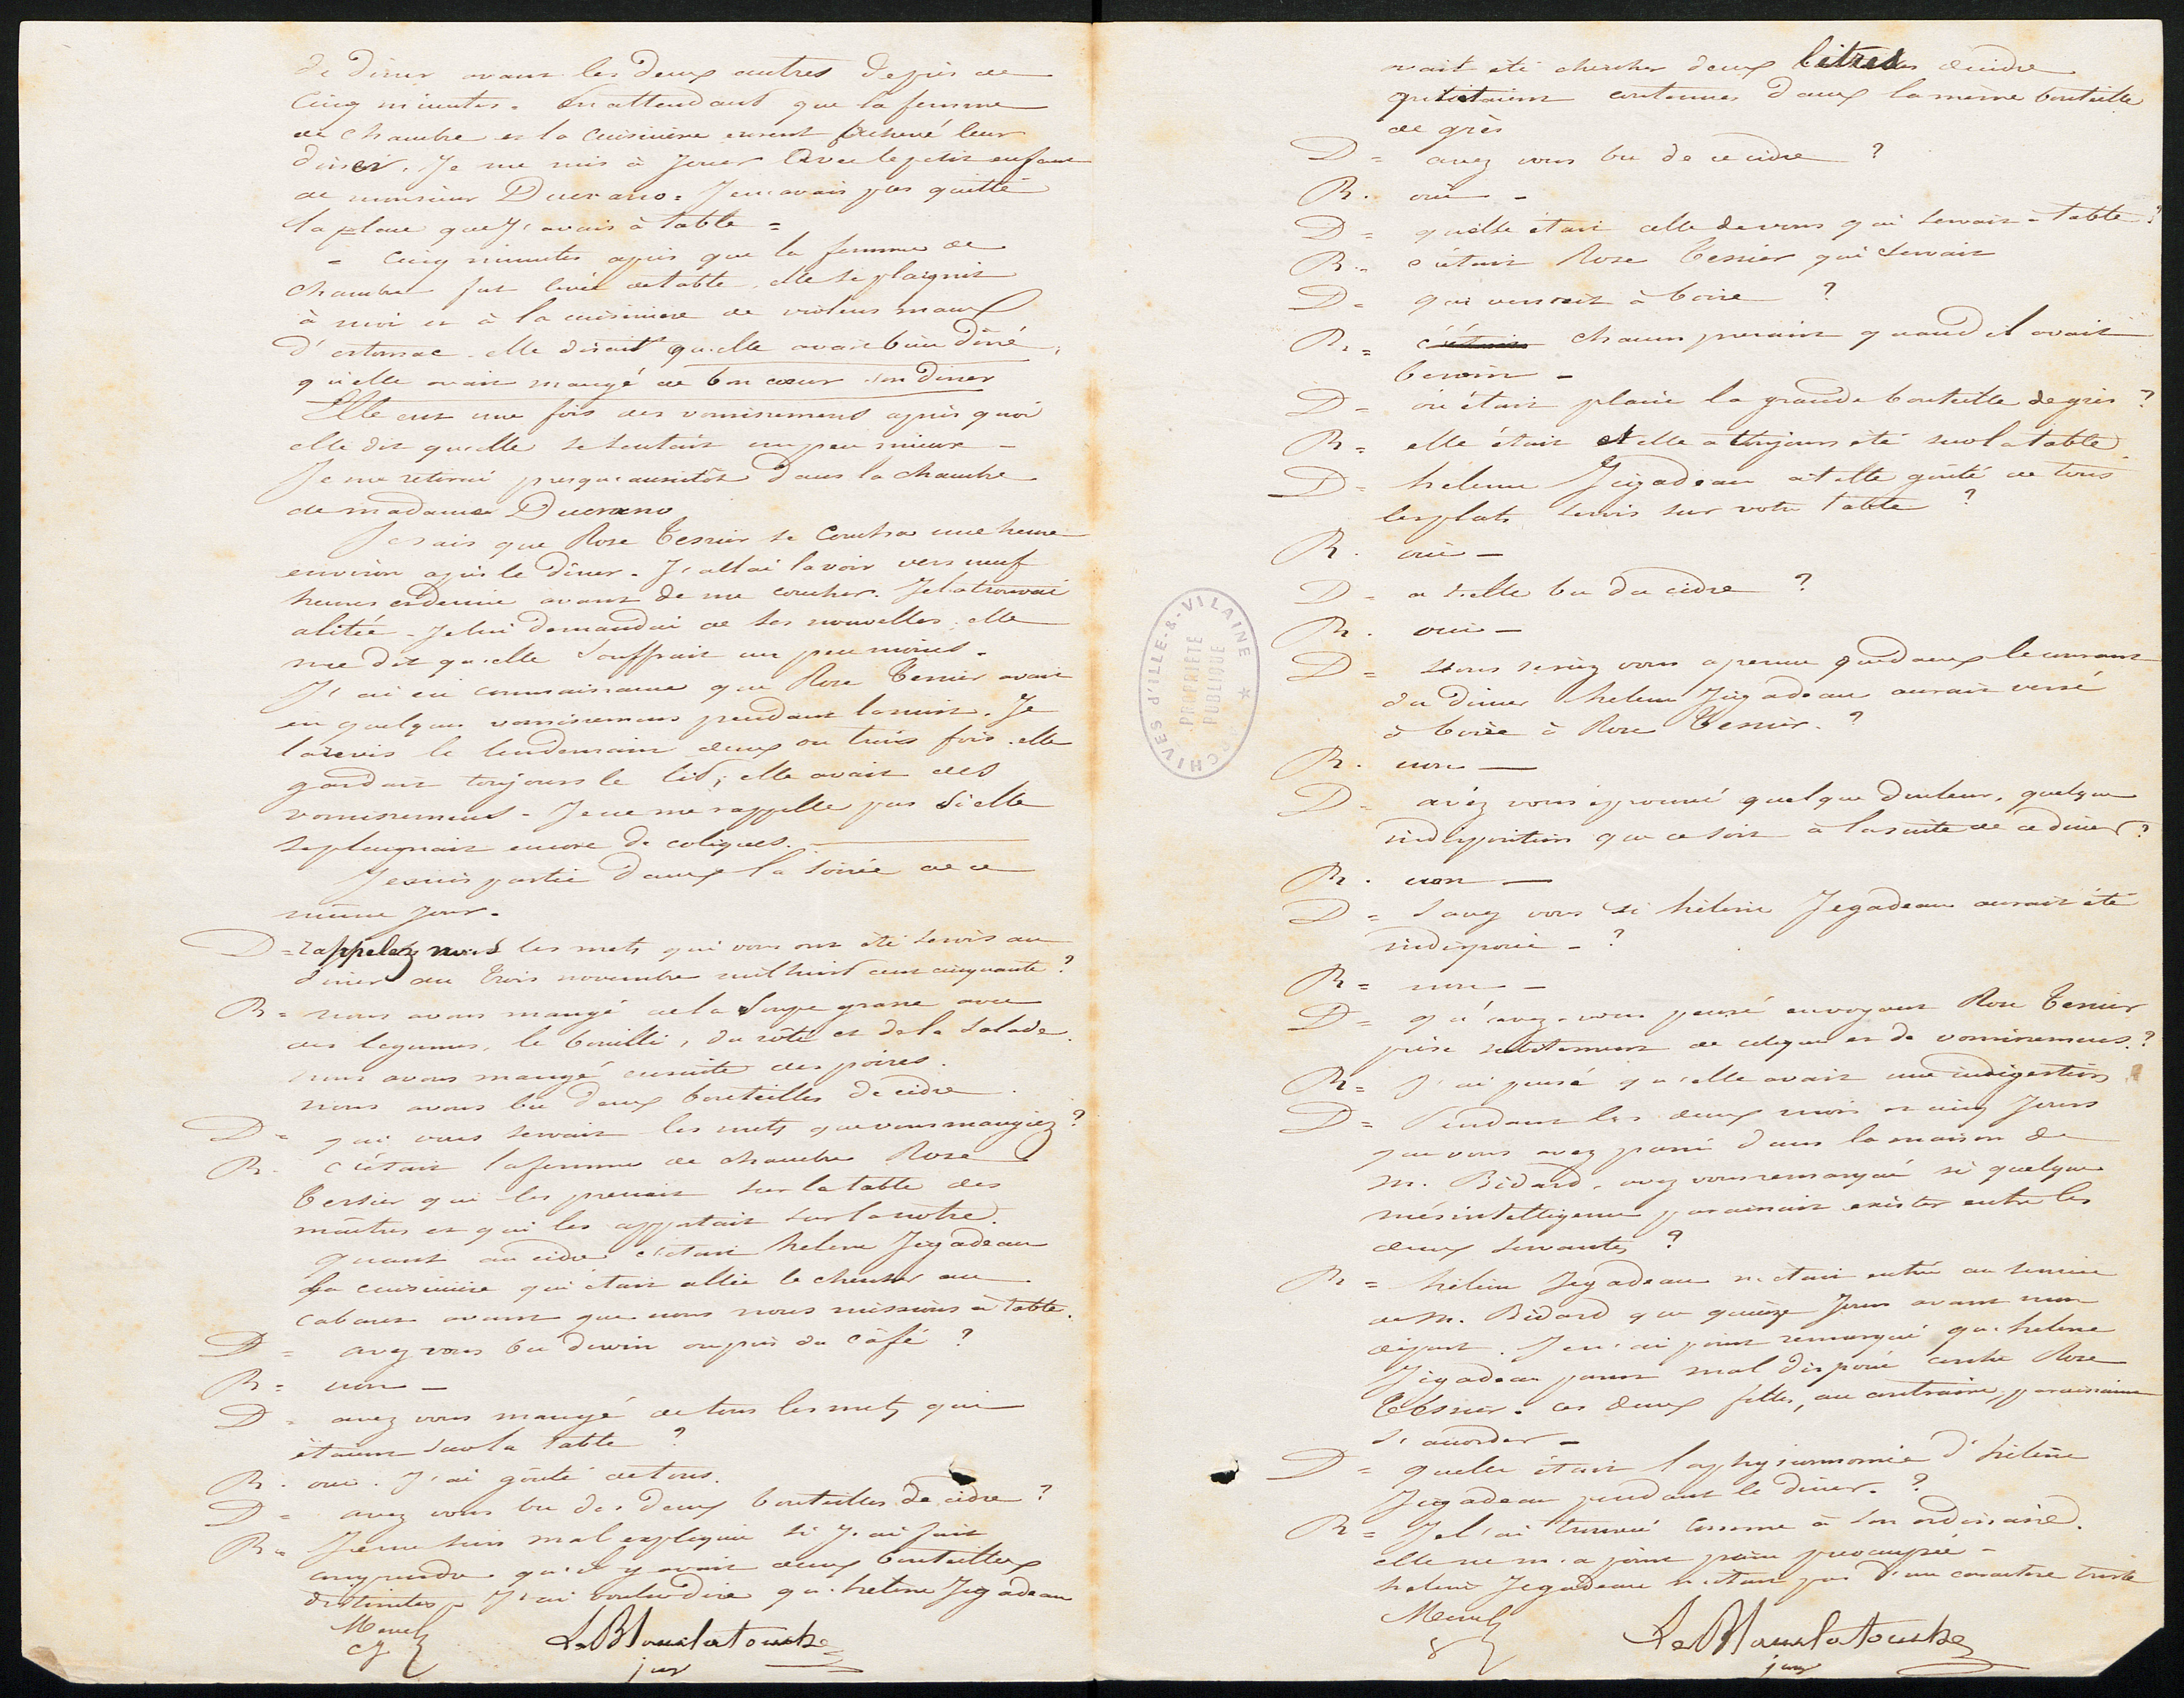 de diner avant les deux autres depuis de
cinq minutes. En attendant que la femme
de chambre et la cuisinière eussent achevé leur
diner, Je me mis à Jouer avec le petit enfant
de monsieur Ducrano. Je n'avais pas quitté
la place que J'avais à table =
= Cinq minutes après que la femme de
chambre fut levée de table, elle se plaignit
à moi et à la cuisinière de violens maux
d'estomac. elle disait qu'elle avait bien diné,
qu'elle avait mangé de bon cœur son diner
Elle eut une fois des vomissemens après quoi
elle dit qu'elle se sentait un peu mieux –
Je me retirai presqu'aussitôt dans la chambre
de madame Ducrano
Je sais que Rose Tessier se coucha une heure
environ après le dîner. J'allai la voir vers neuf
heures et demie avant de me coucher. Je la trouvai
alitée – Je lui demandai de ses nouvelles. elle
me dit qu'elle souffrait un peu moins.
J'ai eu connaissance que Rose Tessier avait
eu quelques vomissemens pendant la nuit. Je
la revis le lendemain deux ou trois fois. elle
gardait toujours le lit; elle avait des
vomissemens – Je ne me rappelle pas si elle
se plaignait encore de coliques.
Je suis partie dans la soirée de ce
même jour.
D = rappelez nous les mets qui vous ont été servis au
diner du trois novembre mil huit cent cinquante ?
R = nous avons mangé de la soupe grasse avec
des legumes, le bouilli, du rôti et de la salade.
nous avons mangé ensuite des poires.
nous avons bu deux bouteilles de cidre
D = qui vous servait les mets que vous mangiez ?
R. c'était la femme de chambre Rose
Tessier qui les prenait sur la table des
maîtres et qui les apportait sur la notre.
quant au cidre c'était helene Jegadeau
la cuisinière qui était allée le chercher au
cabaret avant que nous nous missions à table.
D = avez vous bu du vin ou pris du café ?
R = non –
D = avez vous mangé de tous les mets qui
étaient sur la table ?
R. oui. J'ai goûté de tous.
D = avez vous bu des deux bouteilles de cidre ?
R = Je me suis mal expliquée si J'ai fait
comprendre qu'il y avait deux bouteilles
distinctes. J'ai voulu dire qu'helene Jegadeau
Le Blanc latouche
jug
avait été chercher deux litres de cidre
qui étaient contenus dans la même bouteille
de grès
D = avez vous bu de ce cidre ?
R. oui –
D = quelle était celle de vous qui servait à table ?
R. c'était Rose Tessier qui servait
D = qui versait à boire ?
R. = c'était chacun prenait quand il avait
besoin –
D = où était placée la grande bouteille de grès ?
R = elle était et elle a toujours été sur la table.
D = helene Jegadeau a t elle goûté de tous
les plats servis sur votre table ?
R. oui –
D = a t'elle bu du cidre ?
R. oui –
D = vous seriez vous aperçue que dans le courant
du diner helene Jegadeau aurait versé
à boire à Rose Tessier. ?
R. non –
D = avez vous éprouvé quelque douleur, quelque
indisposition que ce soit à la suite de ce diner ?
R. non –
D = savez vous si hélène Jegadeau aurait été
indisposée – ?
R = non –
D = qu'avez-vous pensé en voyant Rose Tessier
prise subitement de coliques et de vomissemens. ?
R = J'ai pensé qu'elle avait une indigestion
D = Pendant les deux mois et cinq jours
que vous avez passé dans la maison de
M. Bidard, avez vous remarqué si quelque
mésintelligence paraissait exister entre les
deux servantes ?
R = hélène Jegadeau n'était entrée au service
de M. Bidard que quinze jours avant mon
départ. Je n'ai point remarqué qu'helene
Jegadeau parut mal disposée contre Rose
Tessier. ces deux filles, au contraire, paraissaient
s'accorder –
D = quelle était la physionnomie d'hélène
Jegadeau pendant le diner. ?
R = Je l'ai trouvée comme à son ordinaire.
elle ne m'a point paru préoccupée –
helene Jegadeau n'était pas d'un caractère triste
Le Blanc latouche
jug
ARCHIVES D'ILLE-&-VILAINE *
PROPRIÉTÉ
PUBLIQUE